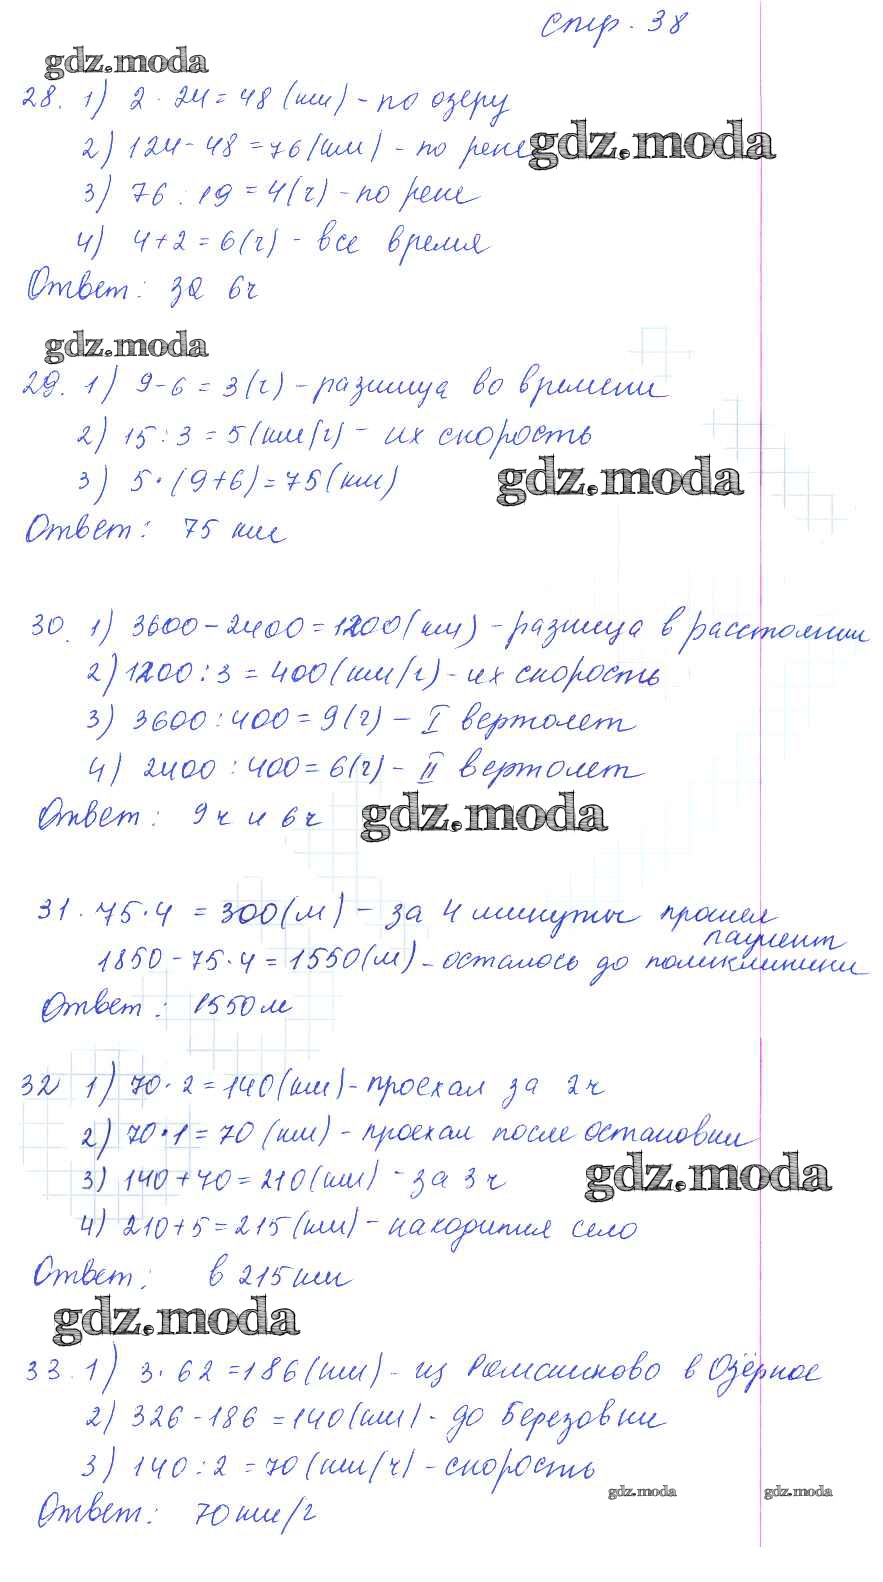 стр. 38
gdz.moda
28. 1) 2 · 24 = 48 (км) - по озеру
2) 124 - 48 = 76 (км) - по реке gdz.moda
3) 76 : 19 = 4 (ч) - по реке
4) 4 + 2 = 6 (ч) - все время
Ответ: за 6 ч
gdz.moda
29. 1) 9 - 6 = 3 (ч) - разница во времени
2) 15 : 3 = 5 (км/ч) - их скорость
3) 5 · (9 + 6) = 75 (км) gdz.moda
Ответ: 75 км
30. 1) 3600 - 2400 = 1200 (км) - разница в расстоянии
2) 1200 : 3 = 400 (км/ч) - их скорость
3) 3600 : 400 = 9 (ч) - I вертолет
4) 2400 : 400 = 6 (ч) - II вертолет
Ответ: 9 ч и 6 ч gdz.moda
31. 75 · 4 = 300 (м) - за 4 минуты прошел
пациент
1850 - 75 · 4 = 1550 (м) - осталось до поликлиники
Ответ: 1550 м
32 1) 70 · 2 = 140 (км) - проехал за 2 ч
2) 70 · 1 = 70 (км) - проехал после остановки
3) 140 + 70 = 210 (км) - за 3 ч gdz.moda
4) 210 + 5 = 215 (км) - находится село
Ответ: в 215 км
gdz.moda
33. 1) 3 · 62 = 186 (км) - из в Озёрное
2) 326 - 186 = 140 (км) - до Березовки
3) 140 : 2 = 70 (км/ч) - скорость
gdz.moda gdz.moda
Ответ: 70 км/ч